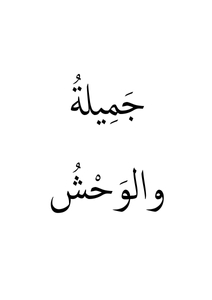 جَمِيلةُ
والوَحْشُ